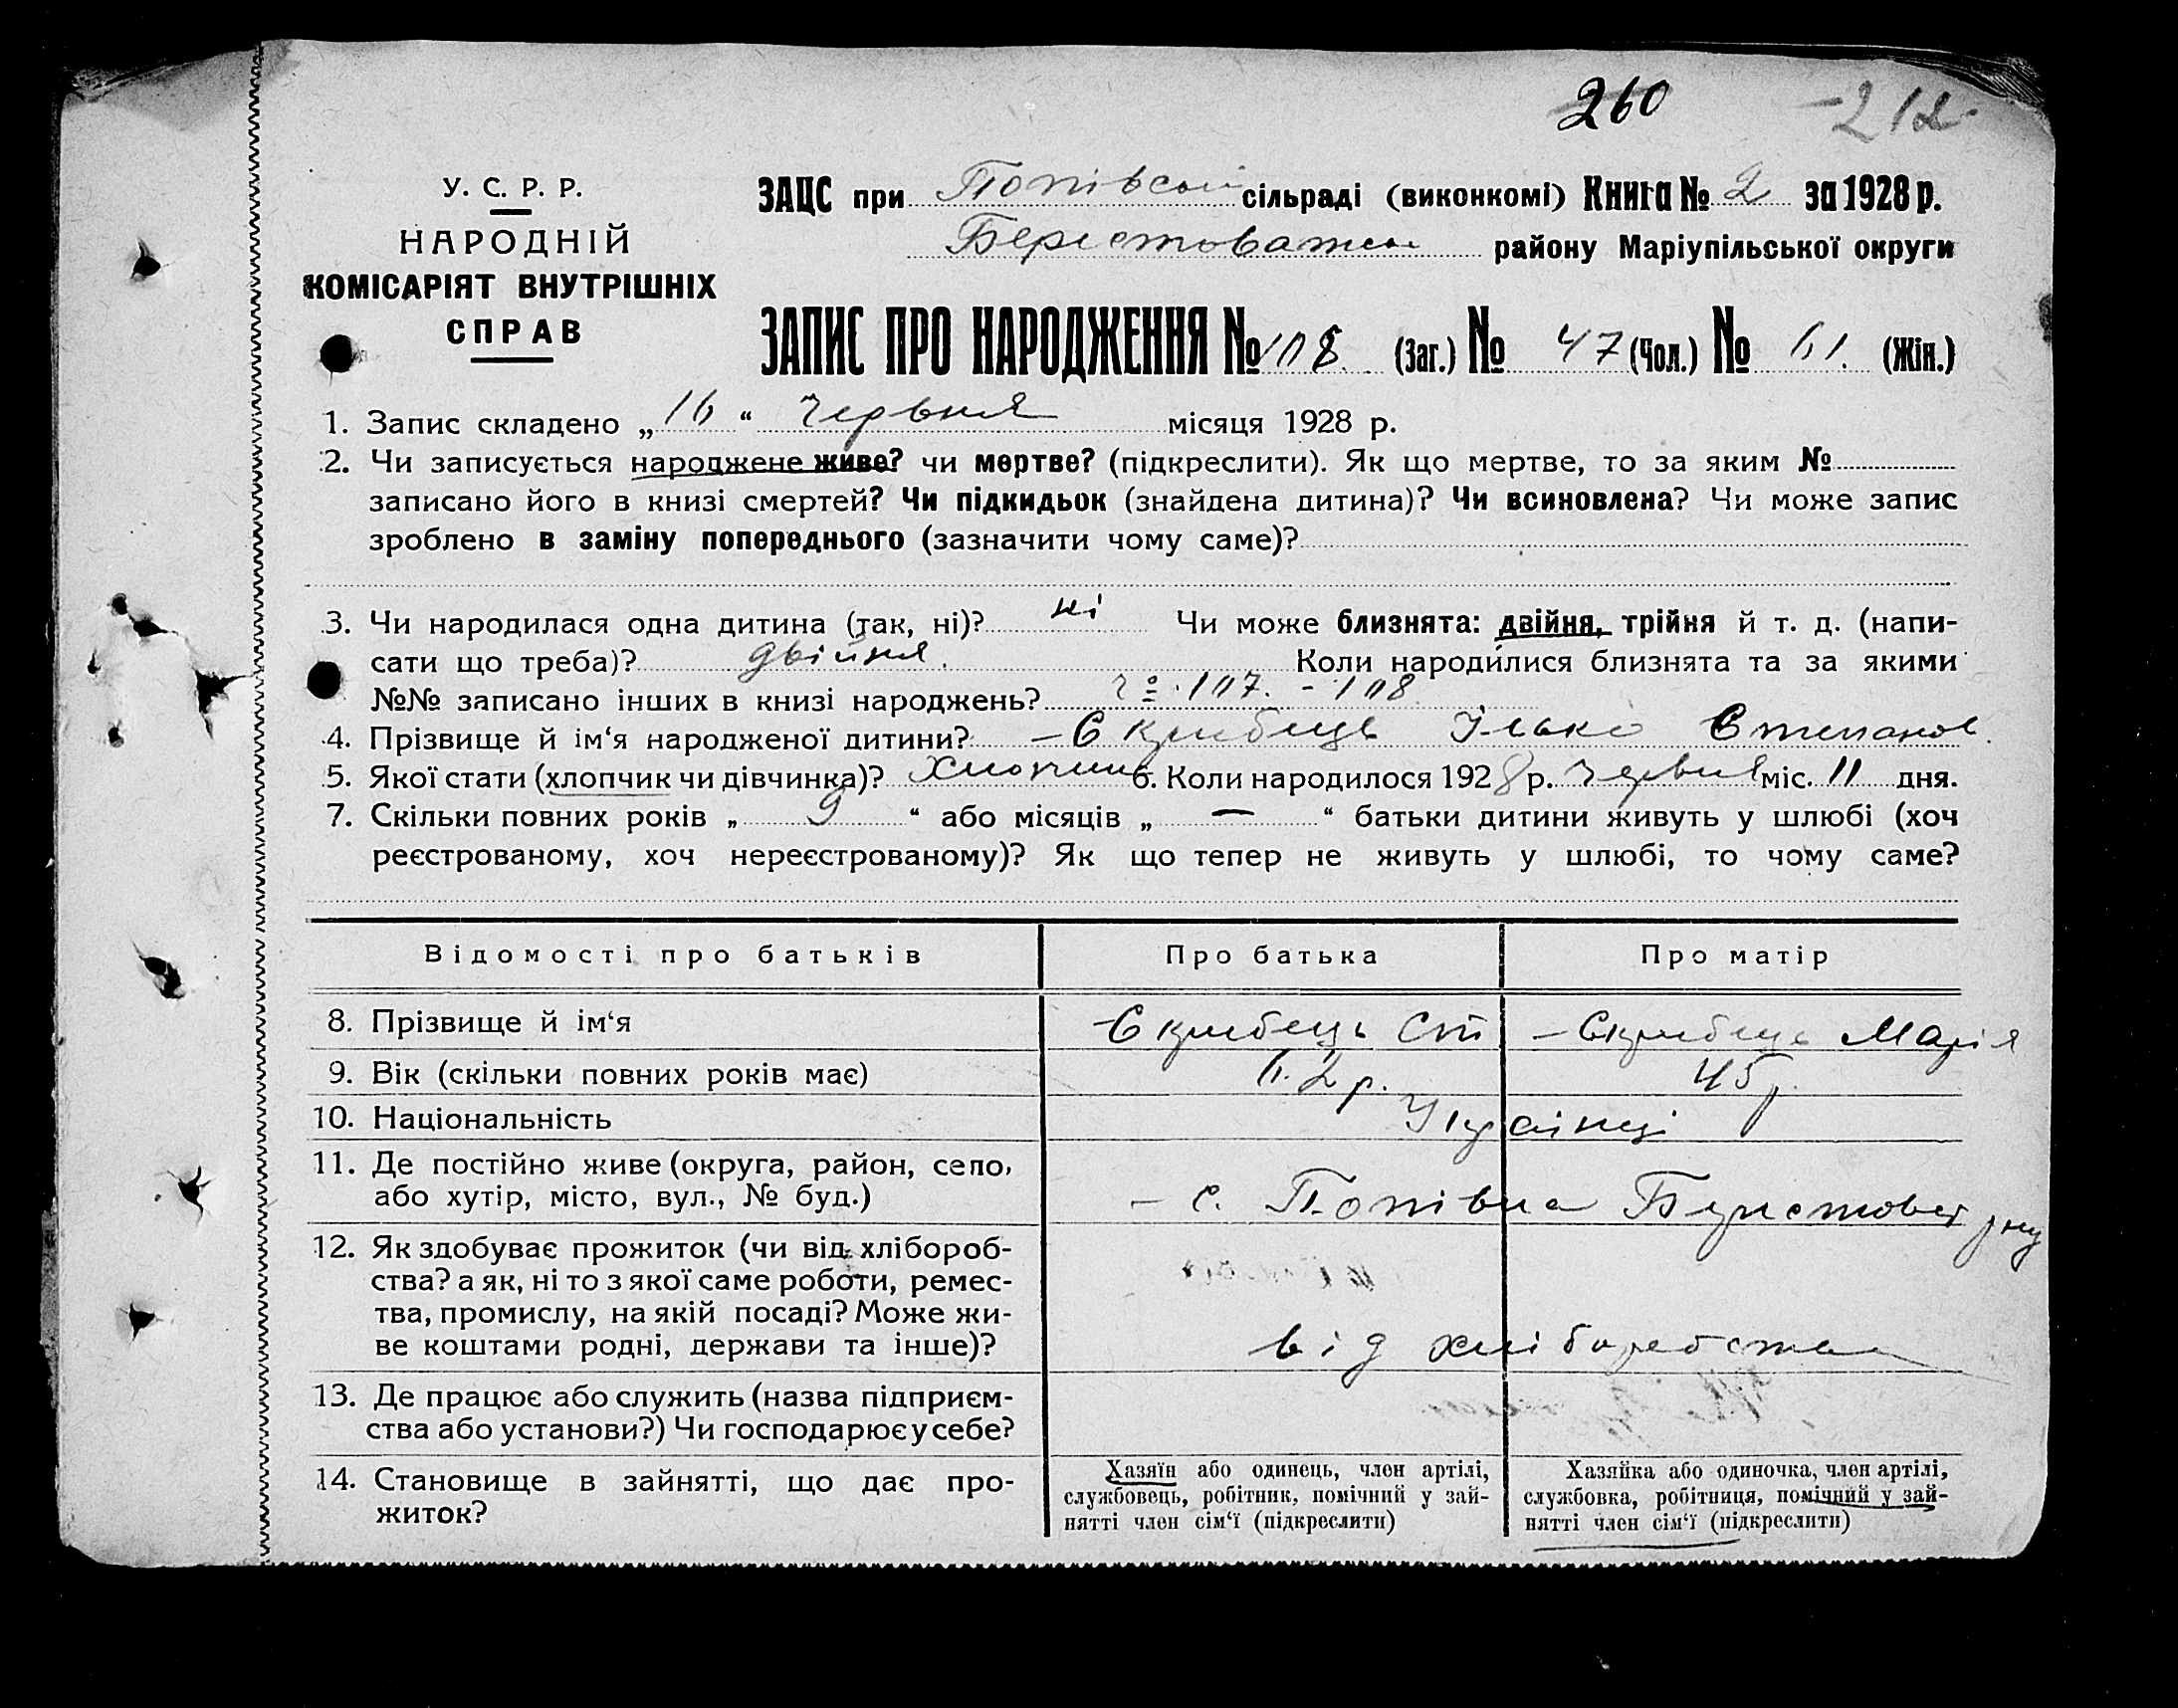 260 -212.
У. С. Р. Р.
НАРОДНІЙ
КОМІСАРІЯТ ВНУТРІШНІХ
СПРАВ
ЗАЦС при Попівській сільраді (виконкомі) Книга № 2 за 1928 р.
району Маріупільської округи
ЗАПИС ПРО НАРОДЖЕННЯ № 108. (Заг.) № 47 (Чол.) № 61. (Жін.)
1. Запис складено „ 16 “ червня місяця 1928 р.
2. Чи записується народжене живе? чи мертве? (підкреслити). Як що мертве, то за яким №
записано його в книзі смертей? Чи підкидьок (знайдена дитина)? Чи всиновлена? Чи може запис
зроблено в заміну попереднього (зазначити чому саме)?
3. Чи народилася одна дитина (так, ні)? ні Чи може близнята: двійня, трійня й т. д. (напи-
сати що треба)? двійня. Коли народилися близнята та за якими
№№ записано інших в книзі народжень? 107. - 108
4. Прізвище й ім‘я народженої дитини? - Скрибець Ілько Степанов.
5. Якої стати (хлопчик чи дівчинка)? Хлопчик 6. Коли народилося 1928 р. червня міс. 11 дня.
7. Скільки повних років „ 9 “ або місяців „ — “ батьки дитини живуть у шлюбі (хоч
реєстрованому, хоч нереєстрованому)? Як що тепер не живуть у шлюбі, то чому саме?
Відомості про батьків Про батька Про матір
8. Прізвище й ім‘я - Скрибець Ст - Скрибець Марія
9. Вік (скільки повних років має) 62 р. 45 р.
10. Національність Українці
11. Де постійно живе (округа, район, село,
або хутір, місто, вул., № буд.) - с. Попівка
12. Як здобуває прожиток (чи від хлібороб-
ства? а як, ні то з якої саме роботи, ремес-
тва, промислу, на якій посаді? Може жи-
ве коштами родні, держави та інше)? від хліборобства
13. Де працює або служить (назва підприєм-
ства або установи?) Чи господарює у себе?
14. Становище в зайнятті, що дає про-
житок?
Хазяїн або одинець, член артілі,
службовець, робітник, помічний у зай-
нятті член сім‘ї (підкреслити)
Хазяйка або одиночка, член артілі,
службовка, робітниця, помічний у зай-
нятті член сім‘ї (підкреслити)